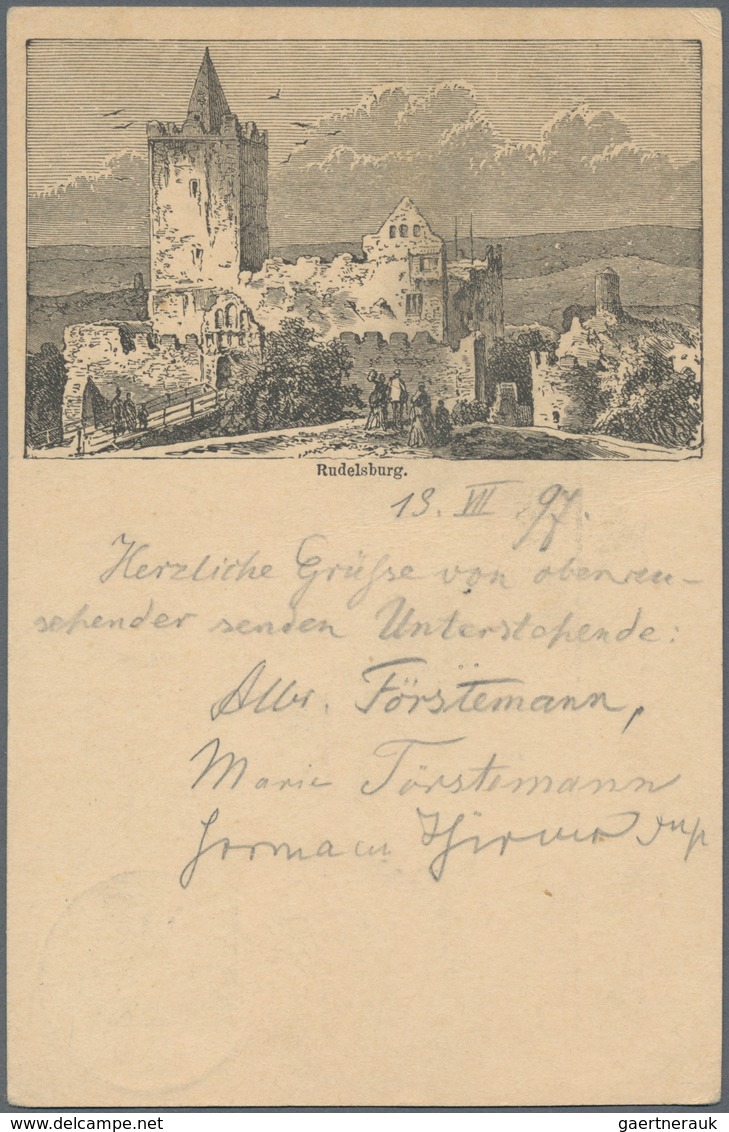 Rudelsburg.
13. VII. 97.
Herzliche Grüsse von
sehender senden Unterstehende:
Albr. Förstemann,
Marie Förstemann
Hermann
delcampe.net
gaertnerauk